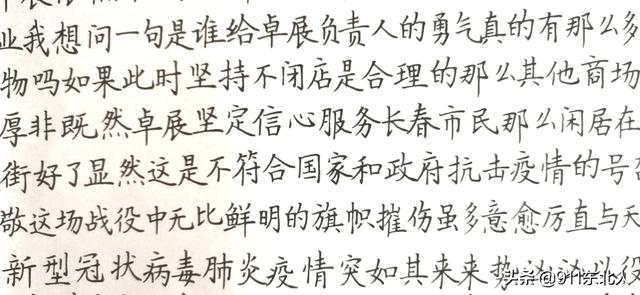 业我想问一句是谁给卓展负责人的勇气真的有那么多
物吗如果此时坚持不闭店是合理的那么其他商场
厚非既然卓展坚定信心服务长春市民那么闲居在
街好了显然这是不符合国家和政府抗击疫情的号召
敬这场战役中无比鲜明的旗帜摧伤虽多意愈厉直与天
新型冠状病毒肺炎疫情突如其来来势汹汹以役
头条@911东北人